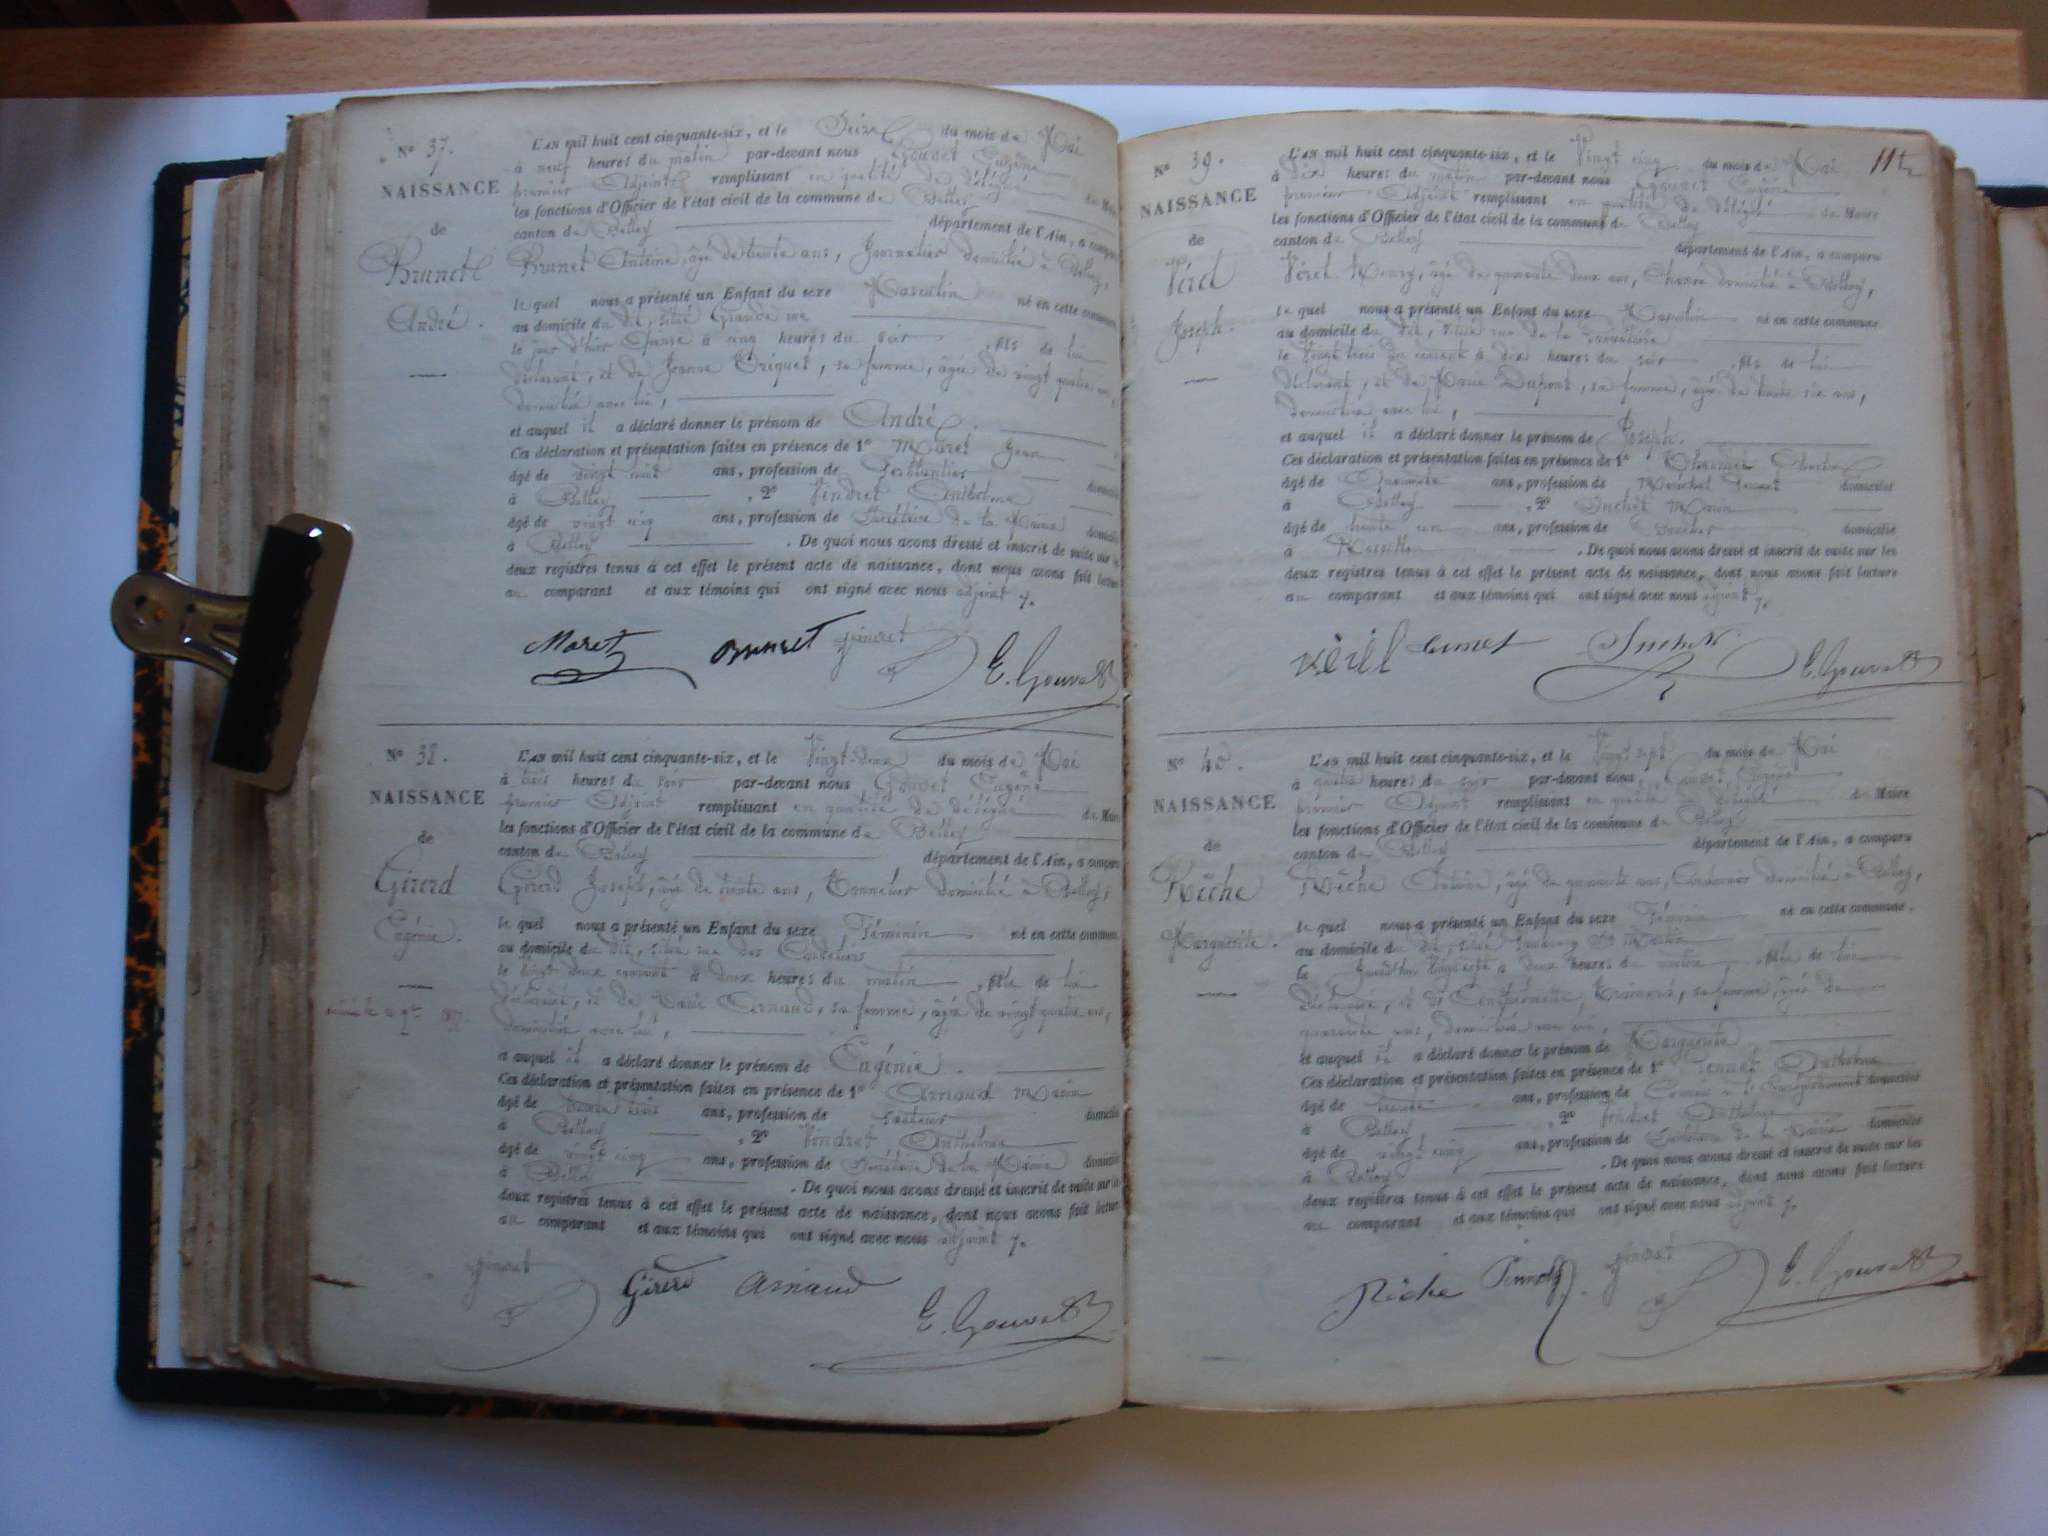 N° 37.
NAISSANCE
de
Brunet
André.
L'AN mil huit cent cinquante-six, et le Seize du mois de Mai
à neuf heures du matin par-devant nous Gouvet Eugène
premier Adjoint remplissant en qualité de délégué du Maire
les fonctions d'Officier de l'état civil de la commune de Belley
canton de Belley département de l'Ain, a comparu
Brunet Antoine, âgé de trente ans, Journalier domicilié à Belley,
le quel nous a présenté un Enfant du sexe Masculin né en cette commune
au domicile du dit, situé Grande rue
le jour d'hier Quinze à cinq heures du soir, fils de lui
déclarant, et de Jeanne Triquet, sa femme, âgée de vingt quatre ans,
domiciliée avec lui,
et auquel il a déclaré donner le prénom de André.
Ces déclaration et présentation faites en présence de 1° Maret Jean
âgé de vingt neuf ans, profession de Ferblantier domicilié
à Belley, 2° Vindret Anthelme
âgé de vingt cinq ans, profession de Secrétaire de la Mairie domicilié
à Belley. De quoi nous avons dressé et inscrit de suite sur les
deux registres tenus à cet effet le présent acte de naissance, dont nous avons fait lecture
au comparant et aux témoins qui ont signé avec nous adjoint
Maret Brunet Vindret E. Gouvet
N° 38.
NAISSANCE
de
Girerd
Eugénie.
L'AN mil huit cent cinquante-six, et le Vingt-deux du mois de Mai
à trois heures du soir par-devant nous Gouvet Eugène
premier Adjoint remplissant en qualité de délégué du Maire
les fonctions d'Officier de l'état civil de la commune de Belley
canton de Belley département de l'Ain, a comparu
Girerd Joseph, âgé de trente ans, Tonnelier domicilié à Belley,
le quel nous a présenté un Enfant du sexe Féminin né en cette commune
au domicile du dit, situé rue des Cordeliers
le vingt deux courant à deux heures du matin, fille de lui
déclarant, et de Marie Arnaud, sa femme, âgée de vingt quatre ans,
domiciliée avec lui,
a auquel il a déclaré donner le prénom de Eugénie.
Ces déclaration et présentation faites en présence de 1° Arnaud Marin
âgé de trente trois ans, profession de domicilié
à Belley, 2° Vindret Anthelme
âgé de vingt cinq ans, profession de Secrétaire de la Mairie domicilié
à Belley. De quoi nous avons dressé et inscrit de suite sur les
deux registres tenus à cet effet le présent acte de naissance, dont nous avons fait lecture
au comparant et aux témoins qui ont signé avec nous adjoint
Vindret Girerd Arnaud E. Gouvet
N° 39.
NAISSANCE
de
Véret
Joseph.
L'AN mil huit cent cinquante-six, et le Vingt cinq du mois de Mai
à dix heures du matin par-devant nous Gouvet Eugène
premier Adjoint remplissant en qualité de délégué du Maire
les fonctions d'Officier de l'état civil de la commune de Belley
canton de Belley département de l'Ain, a comparu
Véret Henry, âgé de quarante deux ans, domicilié à Belley,
le quel nous a présenté un Enfant du sexe Masculin né en cette commune
au domicile du dit, située rue de la
le Vingt trois du courant à dix heures du soir, fils de lui
déclarant, et de Marie Dupont, sa femme, âgée de trente six ans,
domiciliée avec lui,
et auquel il a déclaré donner le prénom de Joseph.
Ces déclaration et présentation faites en présence de 1°
âgé de Quarante ans, profession de domicilié
à Belley, 2° Suchet Marin
âgé de trente un ans, profession de domicilié
à. De quoi nous avons dressé et inscrit de suite sur les
deux registres tenus à cet effet le présent acte de naissance, dont nous avons fait lecture
au comparant et aux témoins qui ont signé avec nous adjoint
Suchet E. Gouvet
N° 40.
NAISSANCE
de
Rêche
Marguerite.
L'AN mil huit cent cinquante-six, et le Vingt sept du mois de Mai
à quatre heures du soir par-devant nous Gouvet Eugène
premier Adjoint remplissant en qualité de délégué du Maire
les fonctions d'Officier de l'état civil de la commune de Belley
canton de Belley département de l'Ain, a comparu
Rêche Antoine, âgé de quarante ans, Cordonnier domicilié à Belley,
le quel nous a présenté un Enfant du sexe Féminin né en cette commune.
au domicile du dit, situé faubourg St Martin
le à deux heures du matin, fille de lui
déclarant, et de sa femme, âgée de
quarante ans, domiciliée avec lui,
et auquel il a déclaré donner le prénom de Marguerite
Ces déclaration et présentation faites en présence de 1° Pennet Anthelme
âgé de trente ans, profession de Commis à l'Enregistrement domicilié
à Belley, 2° Vindret Anthelme
âgé de vingt cinq ans, profession de Secrétaire de la Mairie domicilié
à Belley. De quoi nous avons dressé et inscrit de suite sur les
deux registres tenus à cet effet le présent acte de naissance, dont nous avons fait lecture
au comparant et aux témoins qui ont signé avec nous adjoint
Rêche Pennet Vindret E. Gouvet